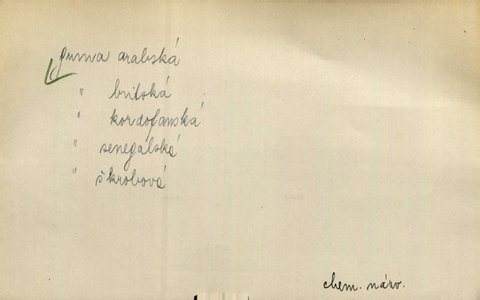 guma arabská
" britská
" kordofanská
" senegalská
" škrobová
chem. názv.